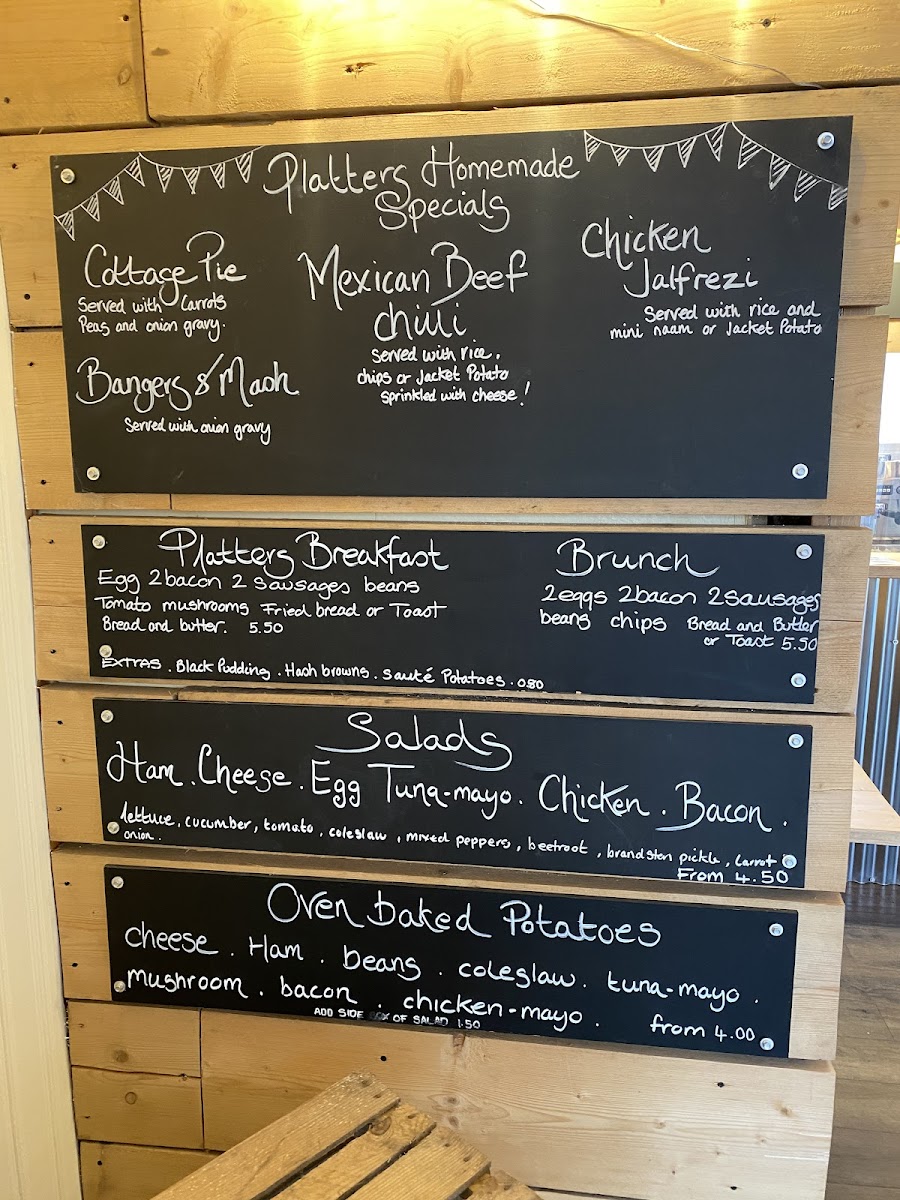 Platters Homemade
Specials
Cottage Pie
Served with Carrots
Peas and onion gravy.
Bangers & Mash
Served with onion gravy
Mexican Beef
chilli
Served with rice,
chips or Jacket Potato
sprinkled with cheese!
Chicken
Jalfrezi
Served with rice and
mini naam or Jacket Potato
Platters Breakfast
Egg 2 bacon 2 Sausages beans
Tomato mushrooms Fried bread or Toast
Bread and butter. 5.50
EXTRAS . Black Pudding . Hash browns . Sauté Potatoes . 0.80
Brunch
2 eggs 2 bacon 2 sausages
beans chips Bread and Butter
or Toast 5.50
Salads
Ham . Cheese . Egg Tuna-mayo . Chicken . Bacon .
lettuce, cucumber, tomato, coleslaw, mixed peppers, beetroot, brandston pickle, carrot
onion.
From 4.50
Oven baked Potatoes
cheese . Ham . beans . coleslaw . tuna-mayo .
mushroom . bacon . chicken-mayo .
ADD SIDE BOX OF SALAD 1.50
from 4.00